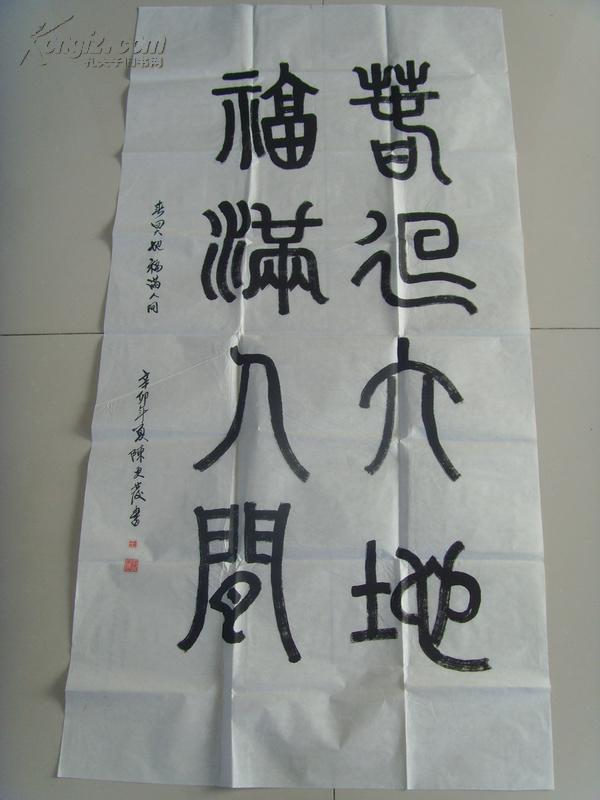 春迴大地
福滿人間
春回大地福满人间
辛卯年夏陳文發書
Kongfz.com
孔夫子旧书网